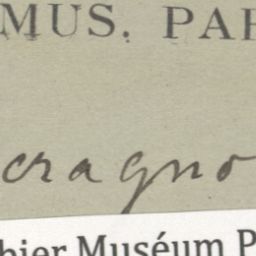 MUS. PAR
cragno
bier Muséum P